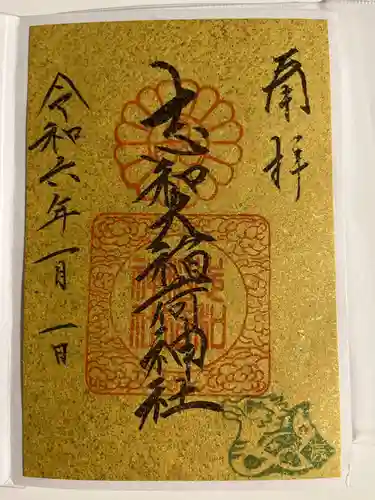 奉拝
志和大稲荷神社
令和六年一月一日